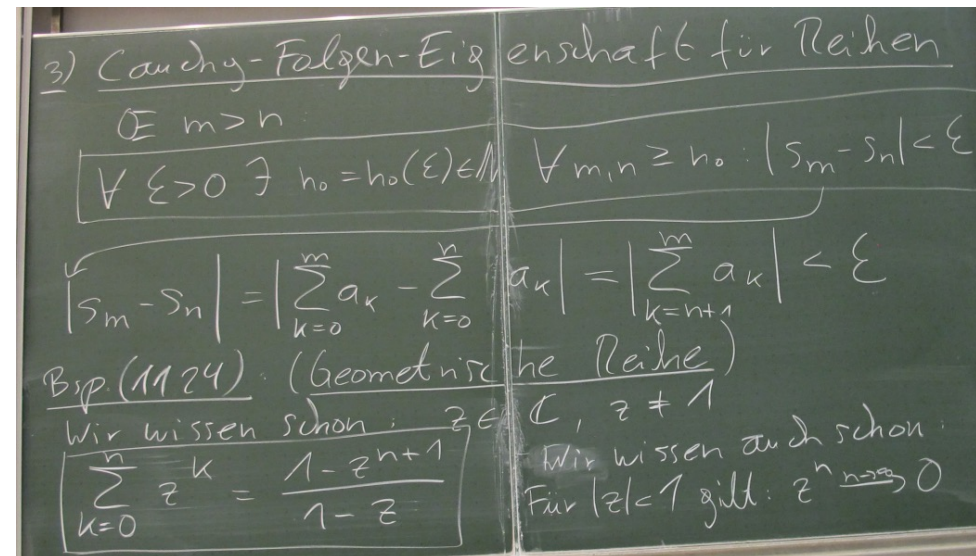 3) Cauchy-Folgen-Eigenschaft für Reihen
Œ m > n
∀ ε>0 ∃ n₀ = n₀(ε) ∈ ℕ ∀ m,n ≥ n₀ : |s_m - s_n| < ε
|s_m - s_n| = |∑_{k=0}^{m} a_k - ∑_{k=0}^{n} a_k| = |∑_{k=n+1}^{m} a_k| < ε
Bsp. (1124): (Geometrische Reihe)
Wir wissen schon: z ∈ ℂ, z ≠ 1
∑_{k=0}^{n} z^k = \frac{1 - z^{n+1}}{1 - z}
Wir wissen auch schon:
Für |z| < 1 gilt: z^n \xrightarrow{n→∞} 0